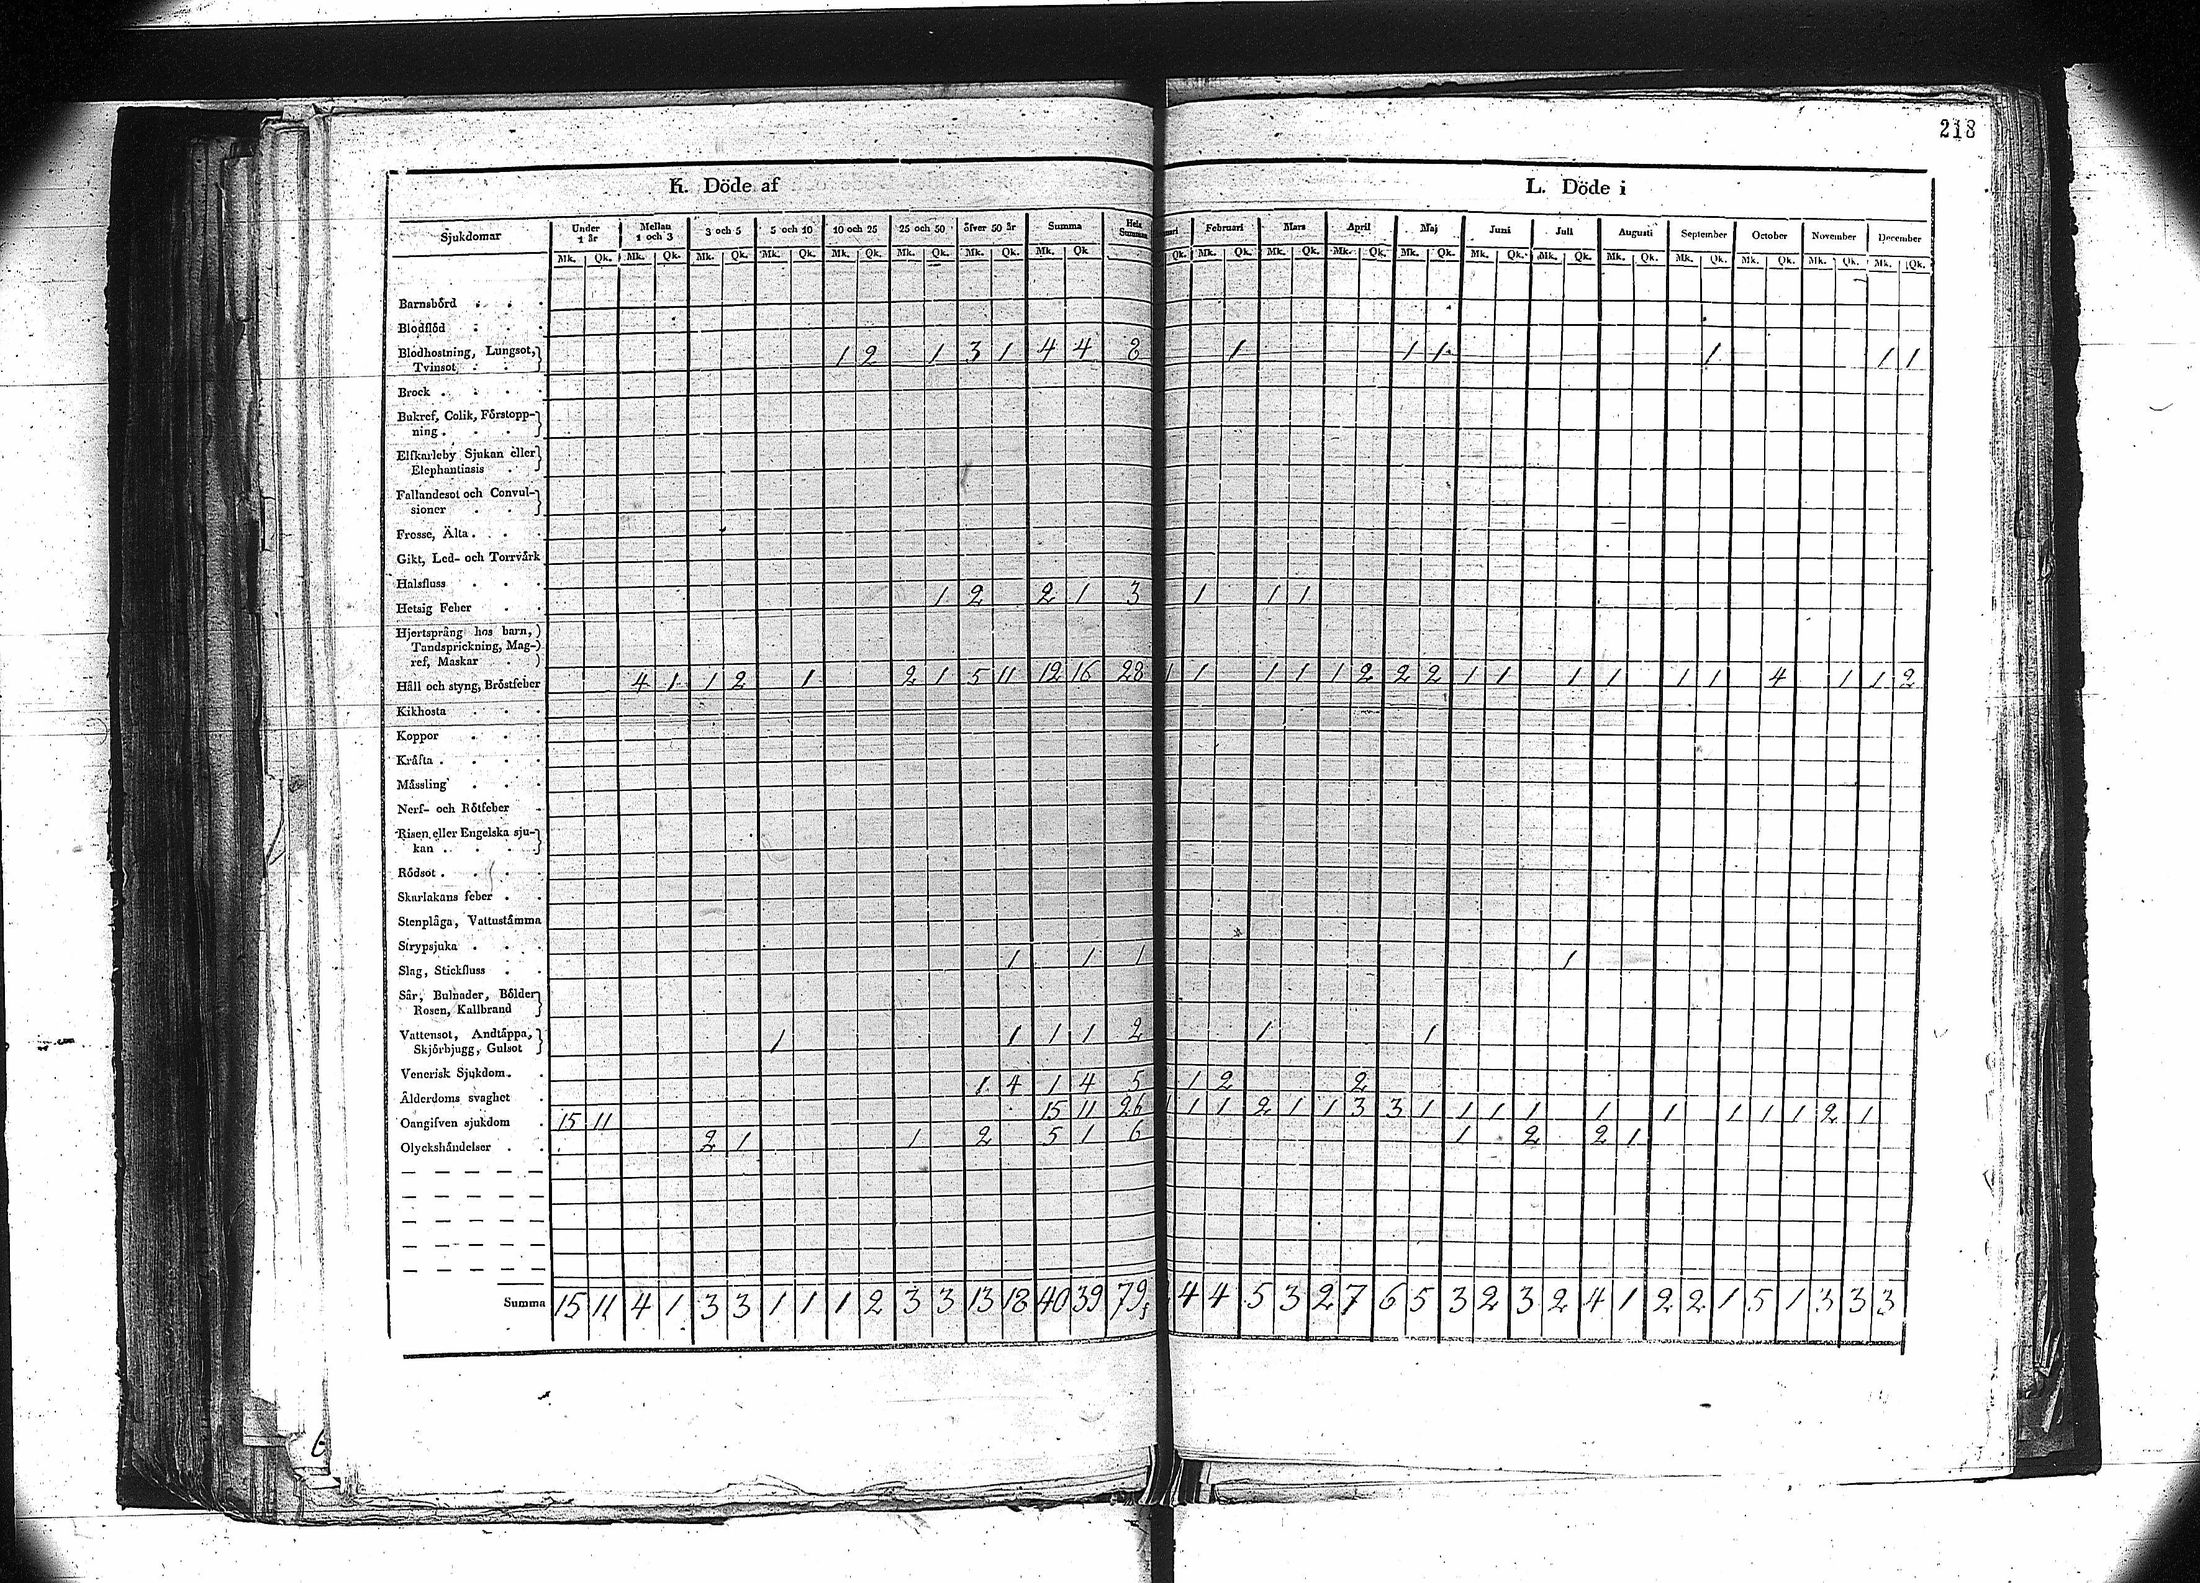 218
K. Döde af
L. Döde i
Sjukdomar Under 1 år Mellan 1 och 3 3 och 5 5 och 10 10 och 25 25 och 50 öfver 50 år Summa Hela Summan Februari Mars April Maj Juni Juli Augusti September October November December
Mk. Qk. Mk. Qk. Mk. Qk. Mk. Qk. Mk. Qk. Mk. Qk. Mk. Qk. Mk. Qk. Qk. Mk. Qk. Mk. Qk. Mk. Qk. Mk. Qk. Mk. Qk. Mk. Qk. Mk. Qk. Mk. Qk. Mk. Qk. Mk. Qk. Mk. Qk.
Barnsbörd
Blodflöd
Blodhostning, Lungsot,
Tvinsot 1 2 1 3 1 4 4 8 1 1 1 1 1 1
Brock
Bukref, Colik, Förstopp-
ning
Elfkarleby Sjukan eller
Elephantiasis
Fallandesot och Convul-
sioner
Frosse, Älta
Gikt, Led- och Torrvärk
Halsfluss
Hetsig Feber 1 2 2 1 3 1 1 1
Hjertsprång hos barn,
Tandsprickning, Mag-
ref, Maskar
Håll och styng, Bröstfeber 4 1 1 2 1 2 1 5 11 12 16 28 1 1 1 1 1 2 2 2 1 1 1 1 1 1 4 1 1 2
Kikhosta
Koppor
Kräfta
Mässling
Nerf- och Rötfeber
Risen eller Engelska sju-
kan
Rödsot
Skarlakans feber
Stenplåga, Vattustämma
Strypsjuka
Slag, Stickfluss 1 1 1 1
Sår, Bulnader, Bölder
Rosen, Kallbrand
Vattensot, Andtäppa,
Skjörbjugg, Gulsot 1 1 1 1 2 1 1
Venerisk Sjukdom
Ålderdoms svaghet 1 4 1 4 5 1 2 2
Oangifven sjukdom 15 11 15 11 26 1 1 1 2 1 1 3 3 1 1 1 1 1 1 1 1 1 2 1
Olyckshändelser 2 1 1 2 5 1 6 1 2 2 1
Summa 15 11 4 1 3 3 1 1 1 2 3 3 13 18 40 39 79 4 4 5 3 2 7 6 5 3 2 3 2 4 1 2 2 1 5 1 3 3 3